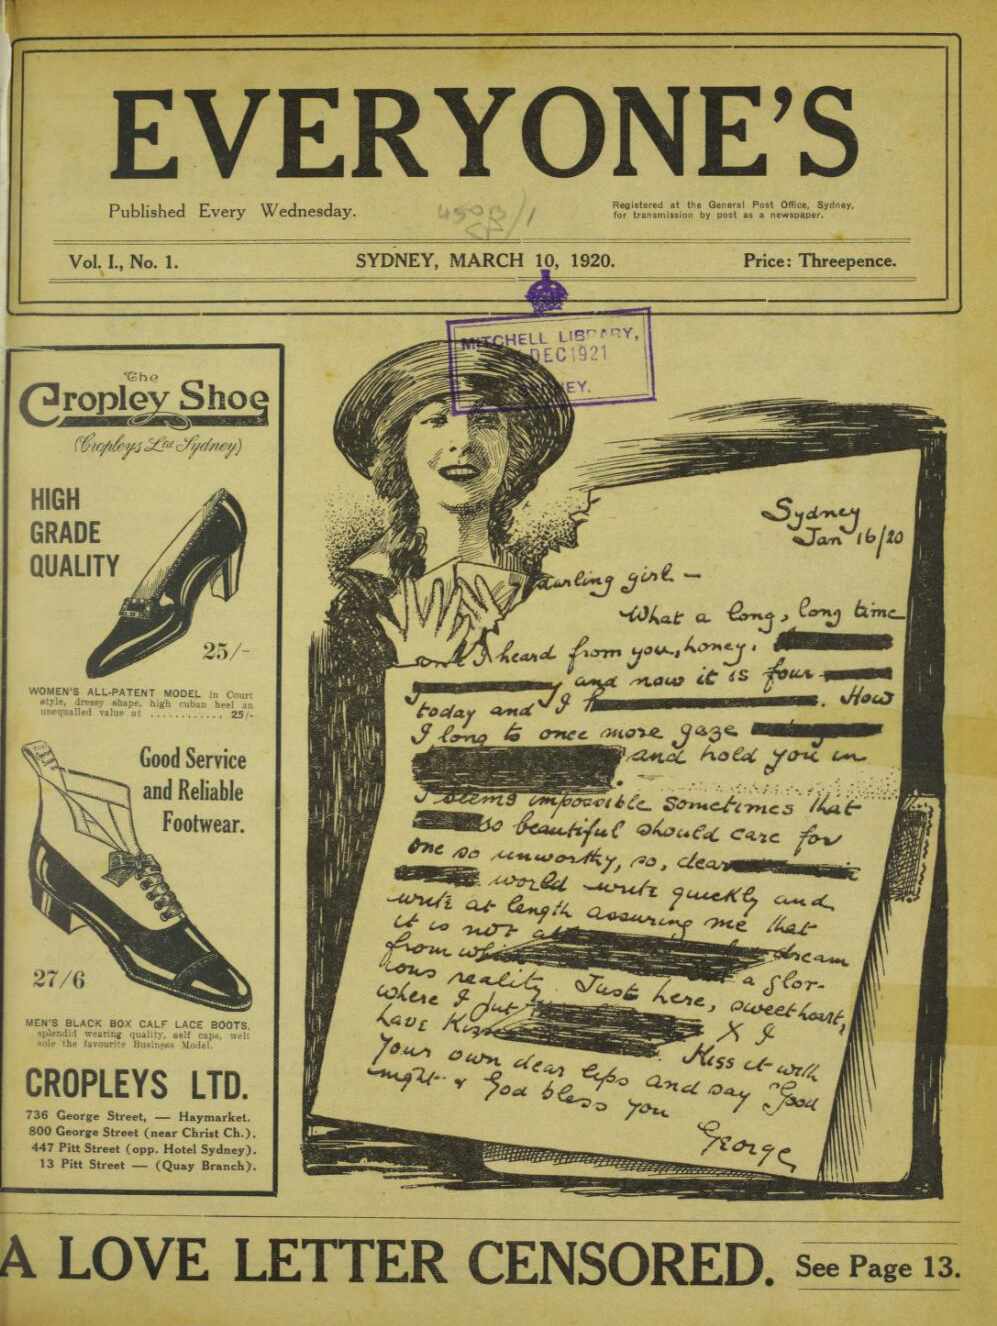 EVERYONE'S
Published Every Wednesday.
Registered at the General Post Office, Sydney,
for transmission by post as a newspaper.
Vol. I., No. 1.
SYDNEY, MARCH 10, 1920.
Price: Threepence.
MITCHELL LIBRARY,
DEC 1921
SYDNEY.
The
Cropley Shoe
(Cropleys Ltd Sydney)
HIGH
GRADE
QUALITY
25/-
WOMEN'S ALL-PATENT MODEL in Court
style, dressy shape, high cuban heel an
unequalled value at ............ 25/-
Good Service
and Reliable
Footwear.
27/6
MEN'S BLACK BOX CALF LACE BOOTS,
splendid wearing quality, self caps, welt
sole the favourite Business Model.
CROPLEYS LTD.
736 George Street, — Haymarket.
800 George Street (near Christ Ch.).
447 Pitt Street (opp. Hotel Sydney).
13 Pitt Street — (Quay Branch).
Sydney
Jan 16/20
darling girl —
What a long, long time
I heard from you, honey.
and now it is four
today and I h . How
I long to once more gaze
and hold you in
seems impossible sometimes that
so beautiful should care for
one so unworthy, so, dear
world write quickly and
write at length assuring me that
it is not a dream
from which a glor-
ious reality. Just here, sweetheart,
where I put X I
have kiss . Kiss it with
your own dear lips and say "Good
night & God bless you
George
A LOVE LETTER CENSORED. See Page 13.